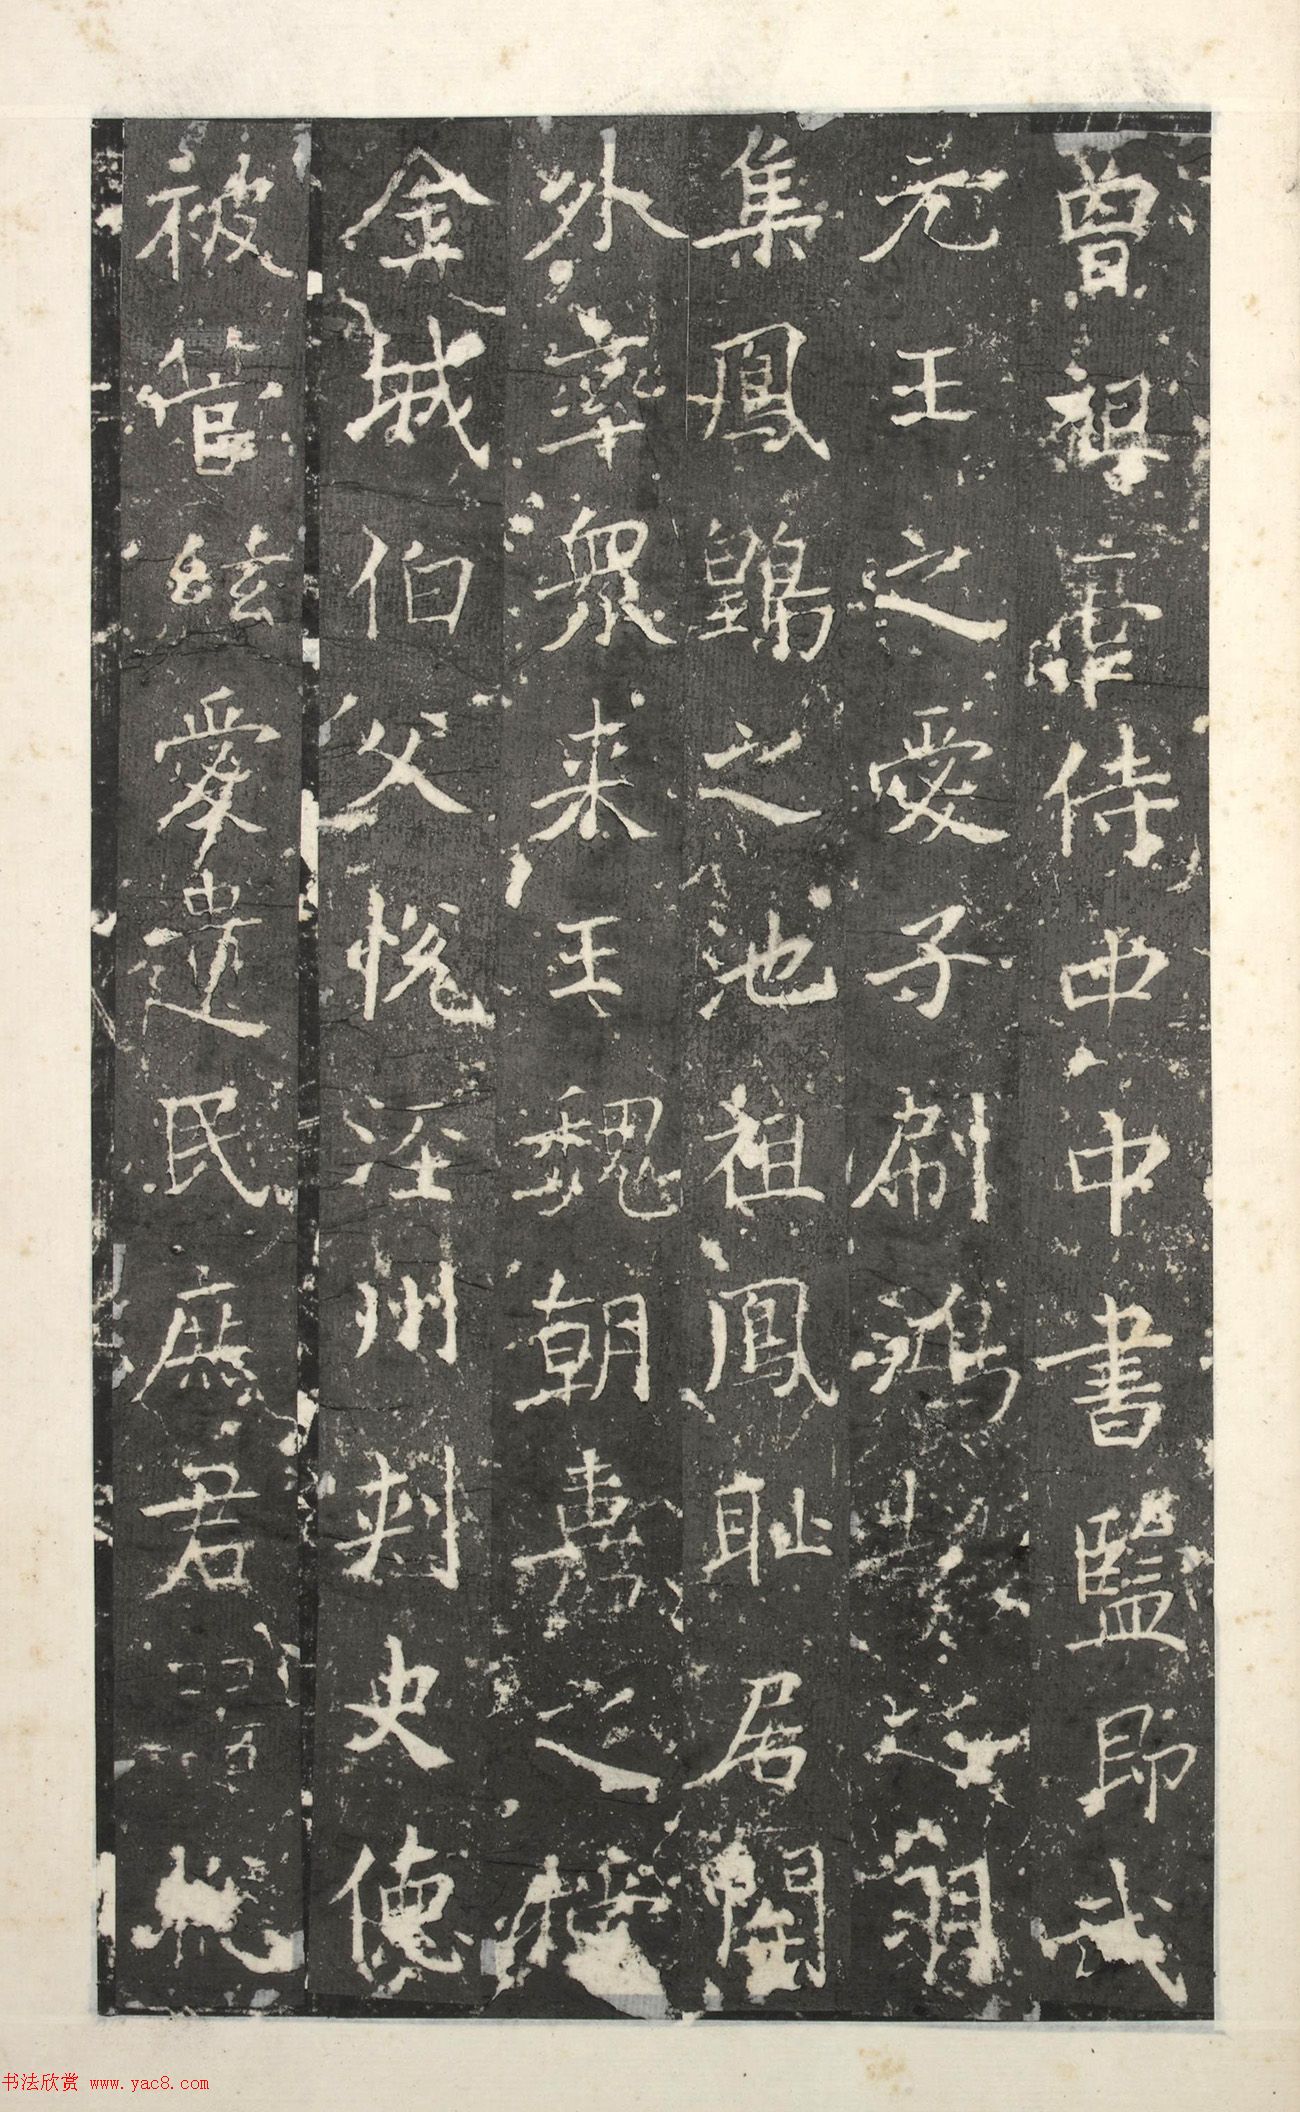 曾祖侍中中書監即武
元王之愛子刷鴻之羽
集鳳䳨之池祖鳳恥居關
外率衆来王魏朝嘉之授
金城伯父悅涇州刺史德
被管絃愛遺民庶君
书法欣赏 www.yac8.com